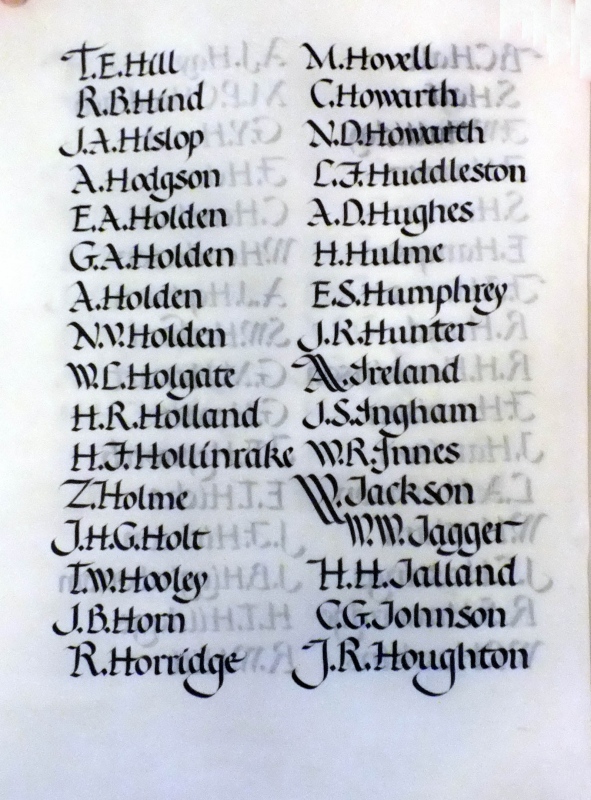 T.E.Hill
R.B.Hind
J.A.Hislop
A.Hodgson
E.A.Holden
G.A.Holden
A.Holden
N.V.Holden
W.L.Holgate
H.R.Holland
H.F.Hollinrake
Z.Holme
J.H.G.Holt
T.W.Hooley
J.B.Horn
R.Horridge
M.Hovell
C.Howarth
N.D.Howarth
L.F.Huddleston
A.D.Hughes
H.Hulme
E.S.Humphrey
J.R.Hunter
A.Ireland
J.S.Ingham
W.R.Innes
W.Jackson
W.W.Jagger
H.H.Jalland
C.G.Johnson
J.R.Houghton